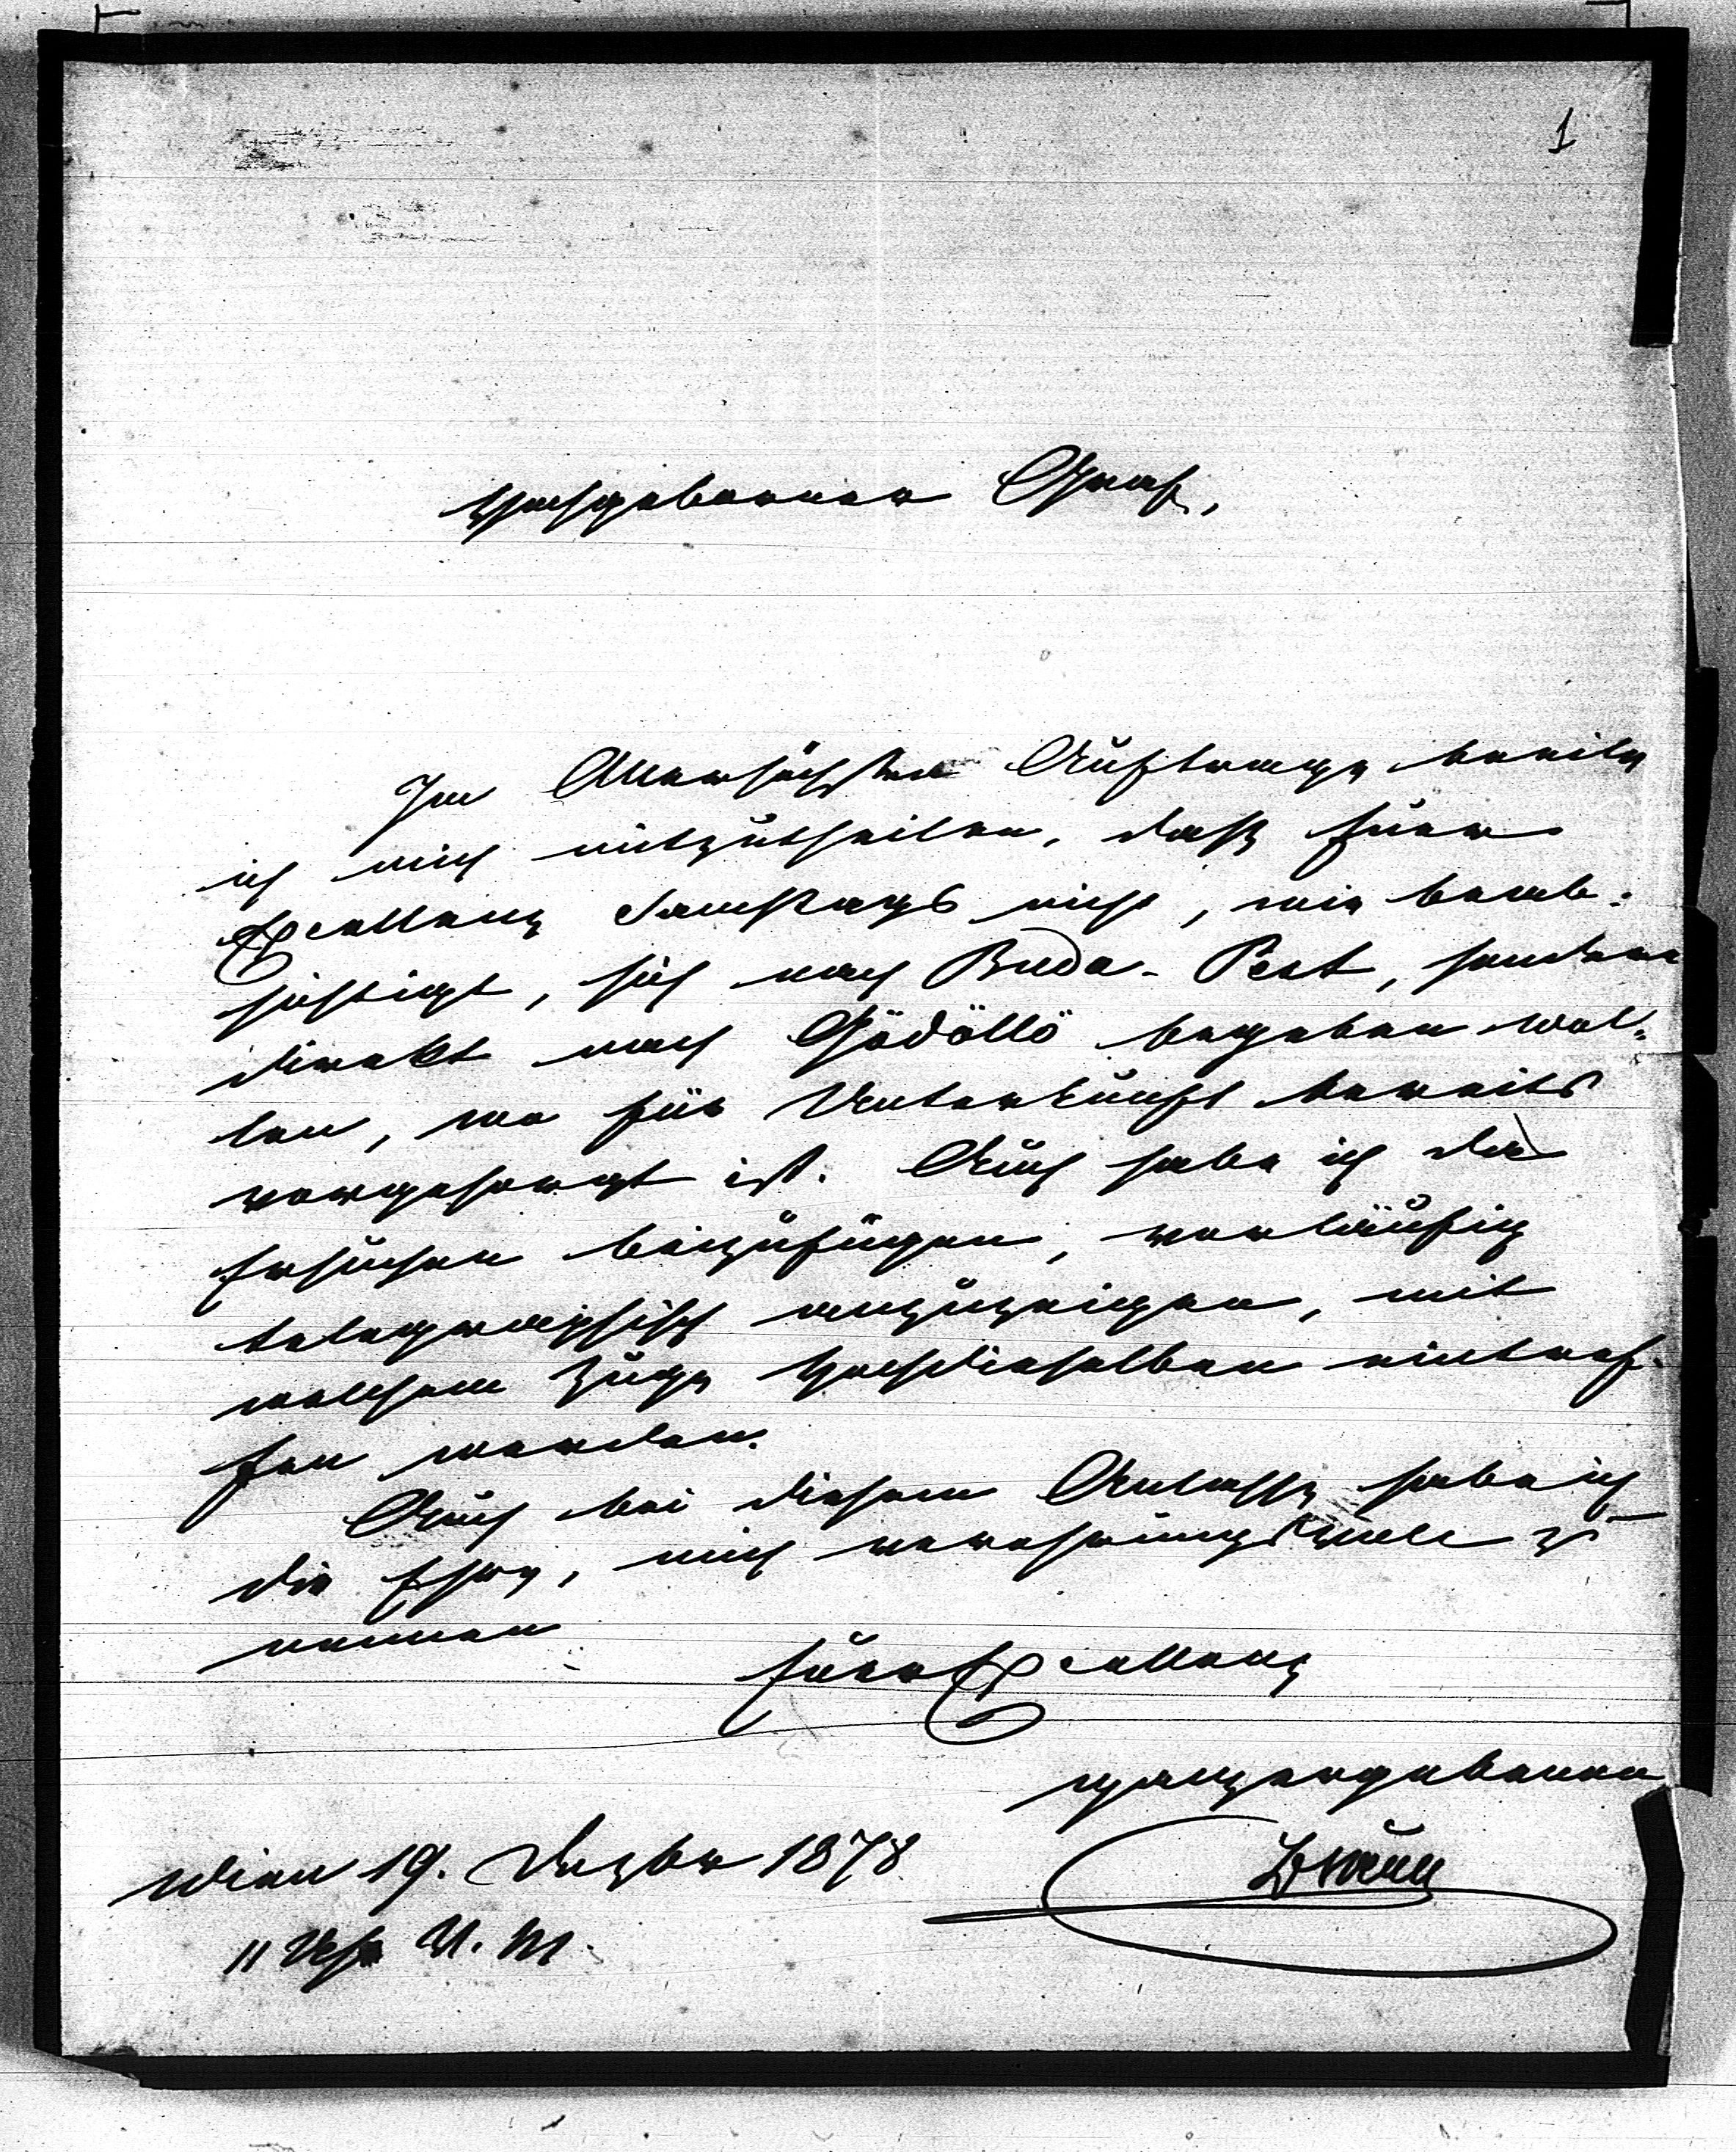 1
Hochgeborener Graf,
Im Allerhöchsten Auftrage beeile
ich mich mitzutheilen, daß Euere
Excellenz Samstags nicht, wie beab:
sichtigt, sich nach Buda-Pest, sondern
direkt nach Gödöllö begeben wol:
len, wo für Unterkunft bereits
vorgesorgt ist. Auch habe ich das
Ersuchen beizufügen, vorläufig
telegraphisch anzuzeigen, mit
welchem Zuge Hochdieselben eintref-
fen werden.
Auch bei diesem Anlasse habe ich
die Ehre, mich verehrungsvoll zu
nennen
Euer Excellenz
ganz ergebenen
Braun
Wien 19. Dezber 1878
11 Uhr V. M.